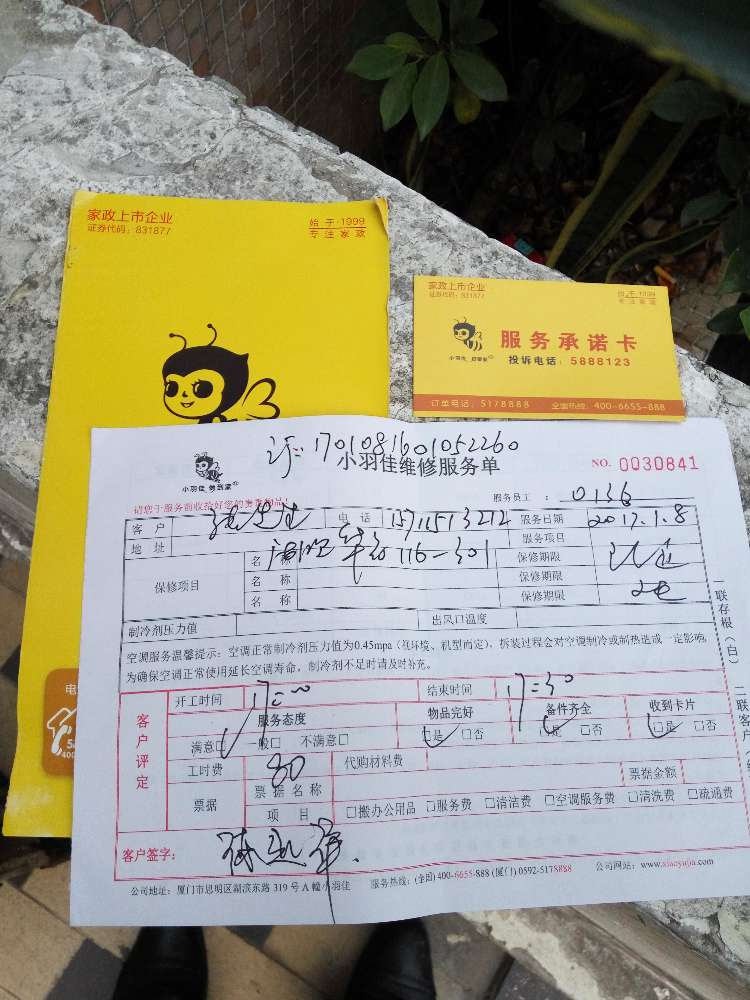 家政上市企业
证券代码：831877
始于·1999
专注家政
家政上市企业
证券代码：831877
始于·1999
专注家政
服务承诺卡
小羽佳 勤到家
投诉电话：5888123
订单电话：5178888 全国热线：400-6655-888
订：1701081601052260
小羽佳 勤到家
小羽佳维修服务单
NO. 0030841
请您于服务前收拾好您的贵重物品！
服务员工：0136
客户 电话 15711513212 服务日期 2017.1.8
地址 116-301 服务项目
保修项目 名称 保修期限
名称 保修期限
名称 保修期限
制冷剂压力值 出风口温度
空调服务温馨提示：空调正常制冷剂压力值为0.45mpa（视环境、机型而定），拆装过程会对空调制冷或制热造成一定影响，
为确保空调正常使用延长空调寿命，制冷剂不足时请及时补充。
客户评定
开工时间 17:00 结束时间 17:30
服务态度 物品完好 备件齐全 收到卡片
满意□ 一般□ 不满意□ □是 □否 □是 □否 □是 □否
工时费 80 代购材料费
票据 票据名称 票据金额
项目 □搬办公用品 □服务费 □清洁费 □空调服务费 □清洗费 □疏通费
客户签字：
公司地址：厦门市思明区湖滨东路 319 号 A 幢小羽佳 服务热线：(全国) 400-6655-888 (厦门) 0592-5178888 公司网站：www.xiaoyujia.com
一联存根（白）
二联客户